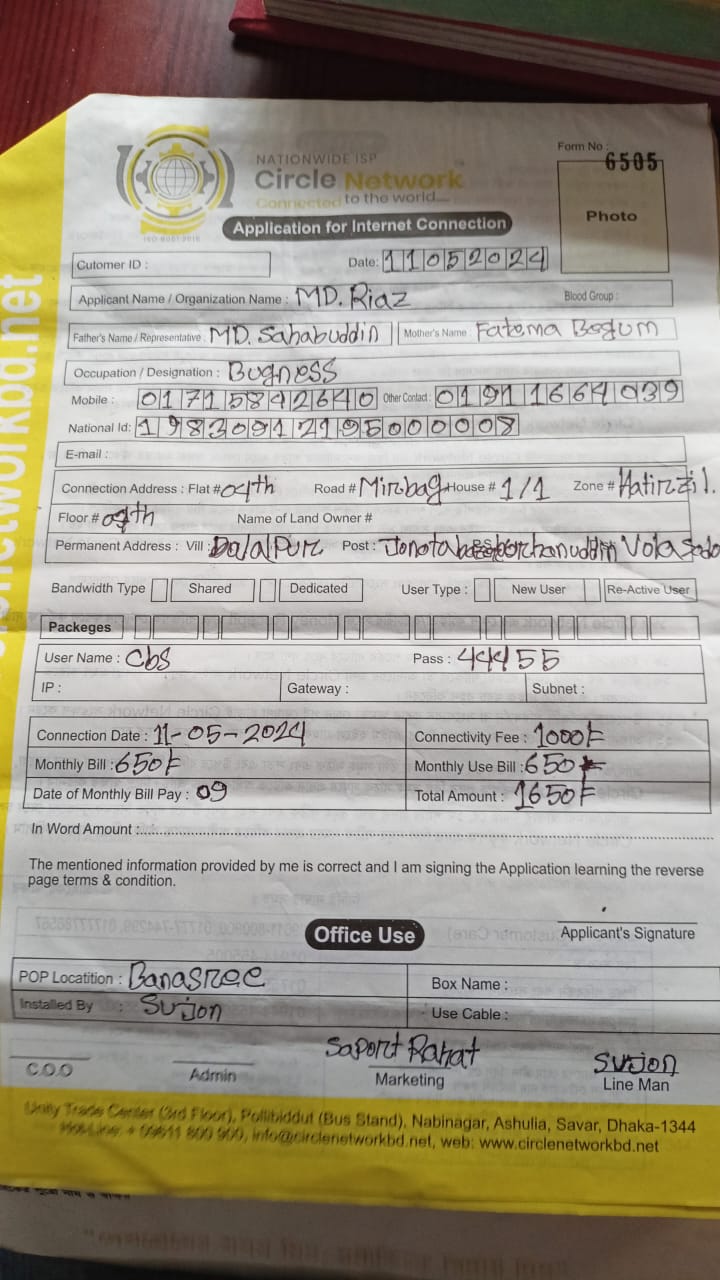 Form No :
6505
NATIONWIDE ISP
Circle Network
Connected to the world....
Photo
ISO 9001:2015
Application for Internet Connection
Cutomer ID :
Date: 11052024
Applicant Name / Organization Name : MD. Riaz Blood Group :
Father's Name / Representative : MD. Sahabuddin Mother's Name : Fatema Begum
Occupation / Designation : Bugness
Mobile : 01715842640 Other Contact : 01911664039
National Id: 19830912195000008
E-mail :
Connection Address : Flat # 04th Road # Mirbag House # 1/1 Zone # Hatirzil.
Floor # 04th Name of Land Owner #
Permanent Address : Vill : Dalalpur Post :
Bandwidth Type Shared Dedicated User Type : New User Re-Active User
Packeges
User Name : Cbs Pass : 44455
IP : Gateway : Subnet :
Connection Date : 11-05-2024 Connectivity Fee : 1000/-
Monthly Bill : 650/- Monthly Use Bill : 650/-
Date of Monthly Bill Pay : 09 Total Amount : 1650/-
In Word Amount :
The mentioned information provided by me is correct and I am signing the Application learning the reverse
page terms & condition.
Applicant's Signature
Office Use
POP Locatition : Banasree Box Name :
Installed By : Surjon Use Cable :
Saport Rahat
Surjon
C.O.O Admin Marketing Line Man
Unity Trade Center (3rd Floor), Pollibiddut (Bus Stand), Nabinagar, Ashulia, Savar, Dhaka-1344
Hot-Line: + 09611 800 900, info@circlenetworkbd.net, web: www.circlenetworkbd.net